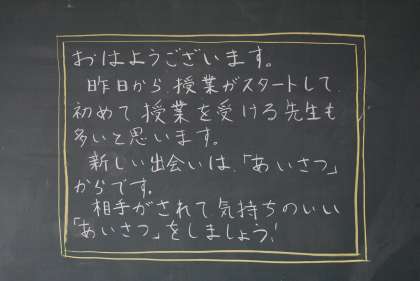 おはようございます。
昨日から授業がスタートして、
初めて授業を受ける先生も
多いと思います。
新しい出会いは、「あいさつ」
からです。
相手がされて、気持ちのいい
「あいさつ」をしましょう!